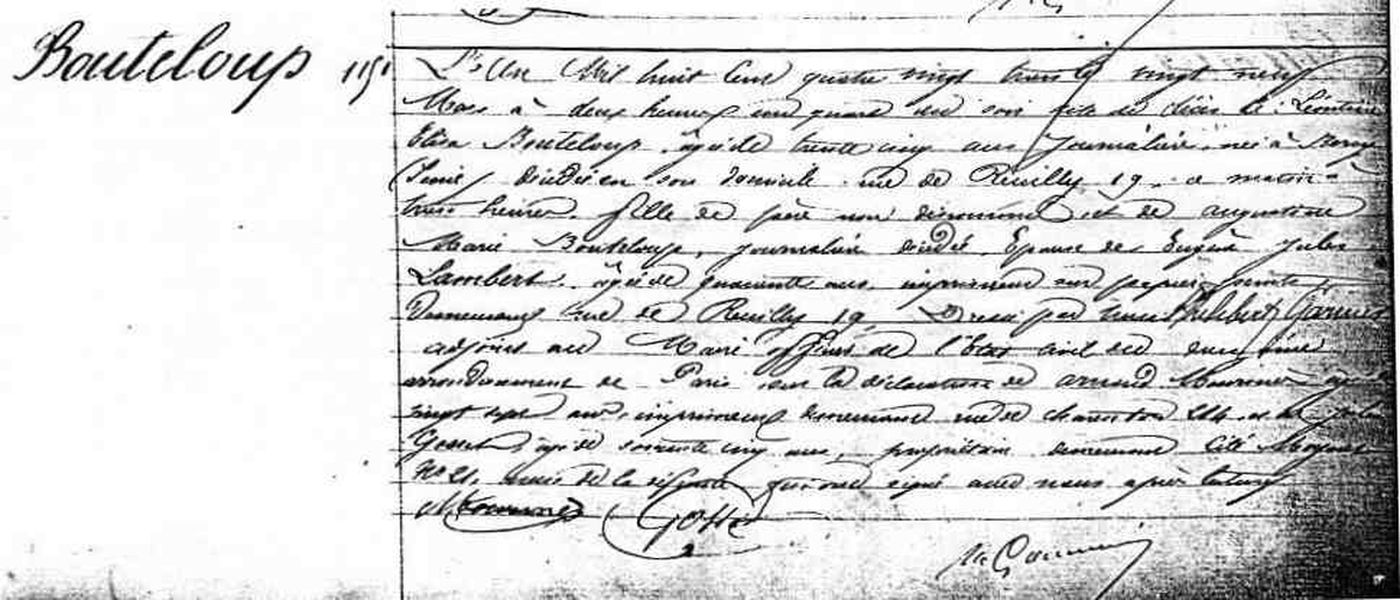 Bouteloup 1151
L'an Mil huit Cent quatre vingt treize le vingt neuf
Mars à deux heures un quart du soir acte de décès de Léontine
Elisa Bouteloup, âgée de trente cinq ans Journalière, née à
décédée en son domicile rue de Reuilly 19, ce matin à
trois heures. fille de père non dénommé et de augustine
Marie Bouteloup, journalière décédée, Epouse de Eugène Jules
Lambert, âgé de quarante ans, imprimeur sur papier peints,
demeurant rue de Reuilly 19. Dressé par nous Philibert
adjoint au Maire officier de l'état civil du douzième
arrondissement de Paris sur la déclaration de
vingt sept ans, imprimeur demeurant rue de charenton et de
âgé de soixante cinq ans, propriétaire demeurant Cité Moynet
amis de la défunte qui ont signé avec nous après lecture